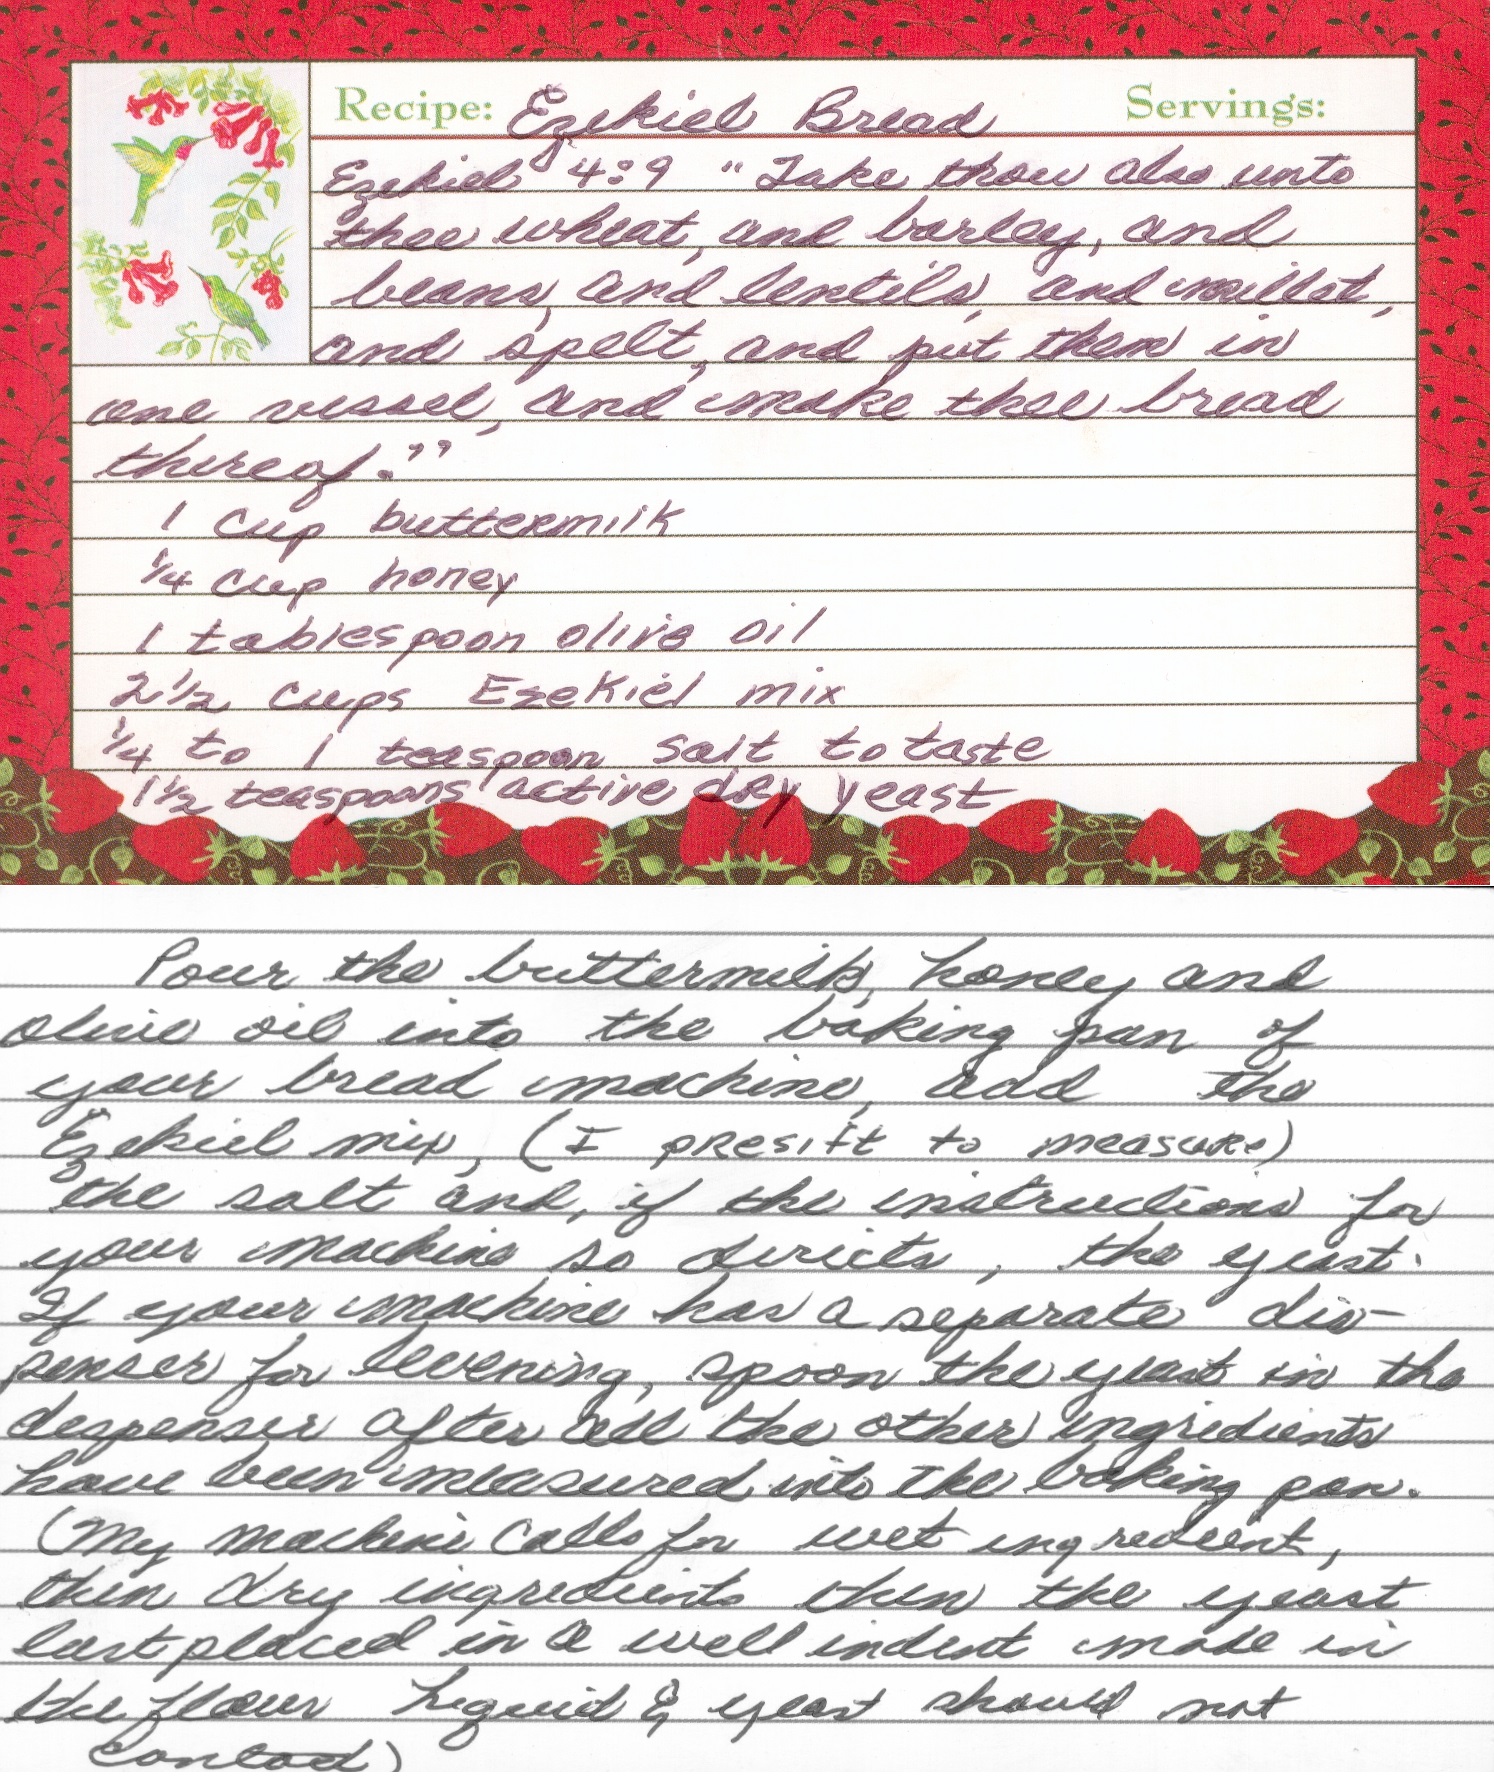 Recipe: Ezekiel Bread Servings:
Ezekiel 4:9 "Take thou also unto
thee wheat, and barley, and
beans, and lentils, and millet,
and spelt, and put them in
one vessel, and make thee bread
thereof."
1 cup buttermilk
1/4 cup honey
1 tablespoon olive oil
2 1/2 cups Ezekiel mix
1/4 to 1 teaspoon salt to taste
1 1/2 teaspoons active dry yeast
Pour the buttermilk, honey and
olive oil into the baking pan of
your bread machine, add the
Ezekiel mix, (I presift to measure)
the salt and, if the instructions for
your machine so directs, the yeast.
If your machine has a separate dis-
penser for levening, spoon the yeast in the
despenser after all the other ingredients
have been measured into the baking pan.
(My machine calls for wet ingredient,
then dry ingredients then the yeast
last placed in a well indent made in
the flour Liquid & yeast should not
contact)